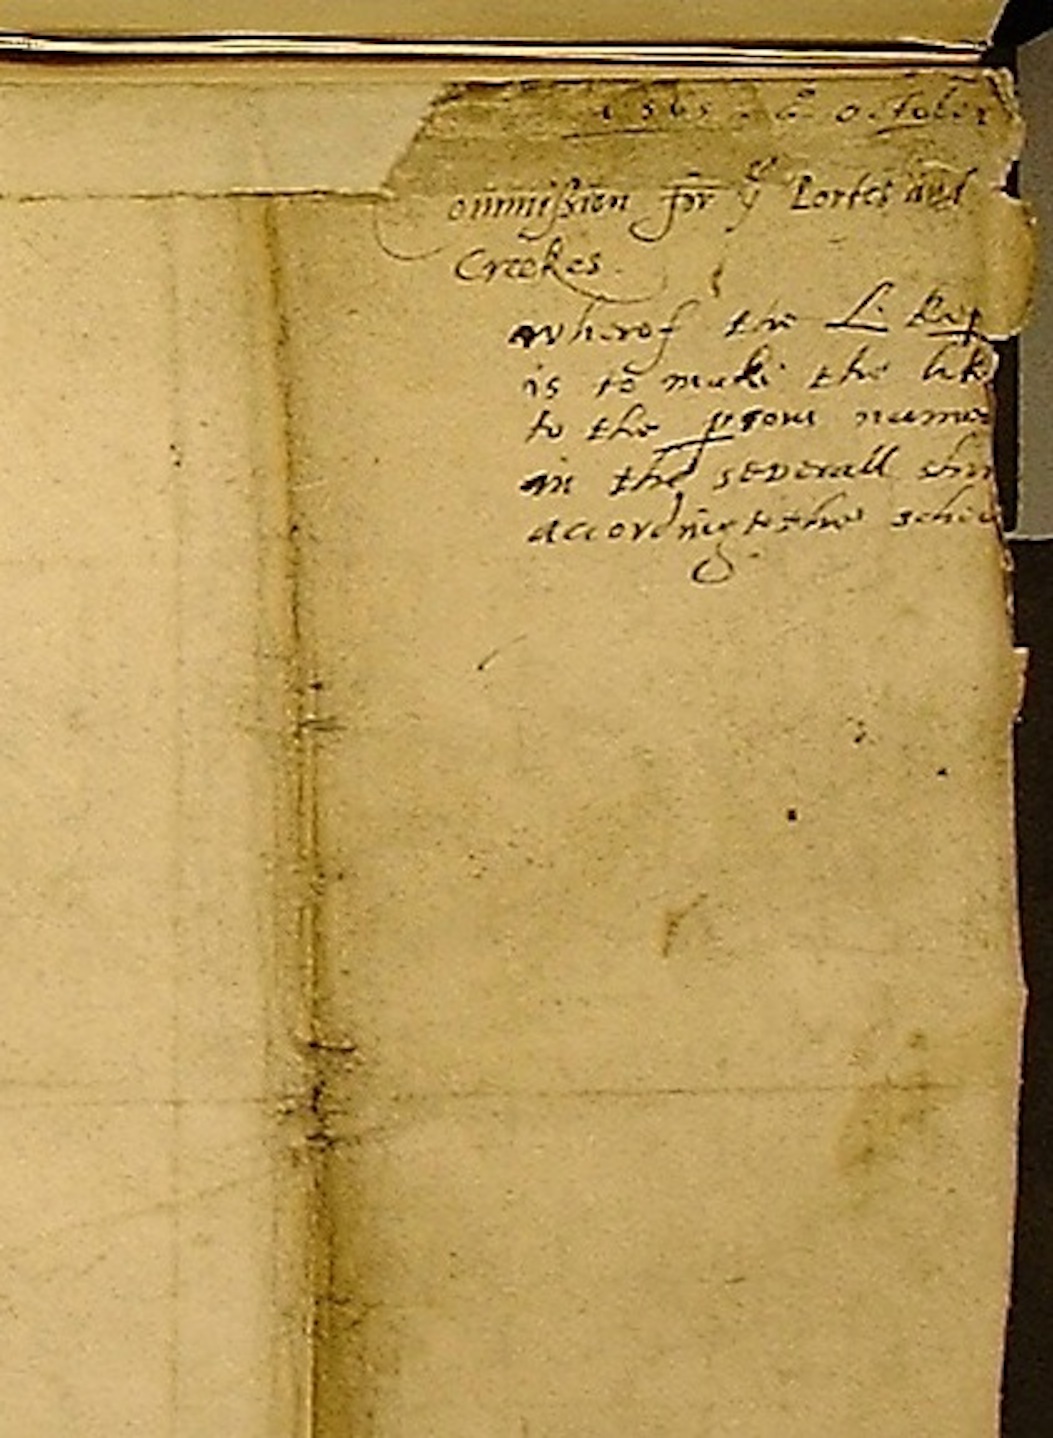 1565 October
Commission for ye Portes and
Creekes.
wherof the L. Kep
is to make the lik
to the psons named
in the severall shir
according to the sched